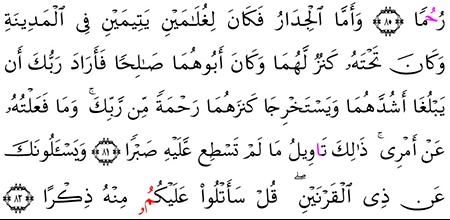 رُحُمًا ﴿٨٠﴾ وَأَمَّا ٱلْجِدَارُ فَكَانَ لِغُلَٰمَيْنِ يَتِيمَيْنِ فِى ٱلْمَدِينَةِ
وَكَانَ تَحْتَهُۥ كَنزٌ لَّهُمَا وَكَانَ أَبُوهُمَا صَٰلِحًا فَأَرَادَ رَبُّكَ أَن
يَبْلُغَا أَشُدَّهُمَا وَيَسْتَخْرِجَا كَنزَهُمَا رَحْمَةً مِّن رَّبِّكَ ۚ وَمَا فَعَلْتُهُۥ
عَنْ أَمْرِى ۚ ذَٰلِكَ تَاوِيلُ مَا لَمْ تَسْطِع عَّلَيْهِ صَبْرًا ﴿٨١﴾ وَيَسْـَٔلُونَكَ
عَن ذِى ٱلْقَرْنَيْنِ ۖ قُلْ سَأَتْلُوا۟ عَلَيْكُمُۥ مِنْهُ ذِكْرًا ﴿٨٢﴾